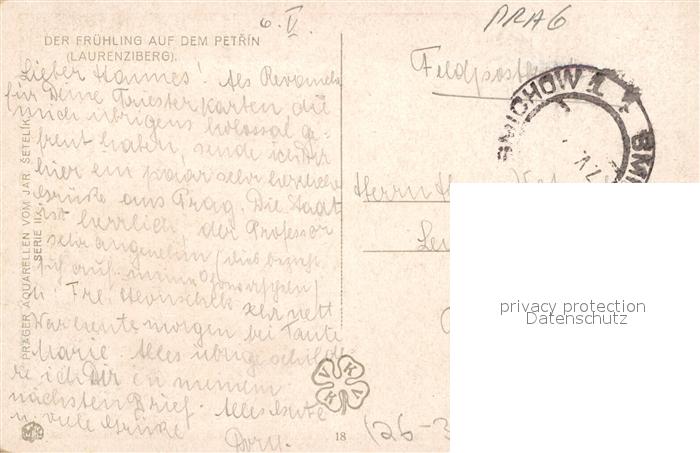 6. V.
PRAG
DER FRÜHLING AUF DEM PETŘÍN
(LAURENZIBERG).
Lieber Hannes! Als Revanche
für Deine Triesterkarten die
mich übrigens kolossal ge-
freut haben, sende ich Dir
hier ein paar sehr herzliche
Grüße aus Prag. Die Stadt
ist herrlich, der Professor
sehr angenehm (dies bezieht
sich auf
u. Frl. sehr nett
War heute morgen bei Tante
Marie. Alles übrige schilde-
re ich Dir in meinem
nächsten Brief. Alles Gute
u. viele Grüße
Dory.
PRAGER AQUARELLEN VOM JAR. ŠETELÍK.
SERIE II
Feldpost
SMICHOW 1.
Herrn
V K V
18
(26-3
privacy protection
Datenschutz